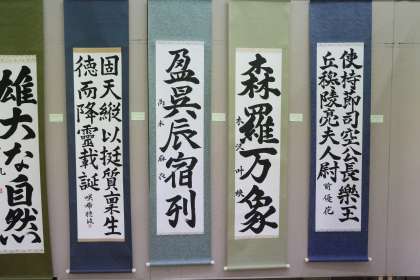 使持節司空公長樂王
丘穆陵亮夫人尉
森羅万象
盈昃辰宿列
固天縱以挺質稟生
德而降靈載誕
雄大な自然